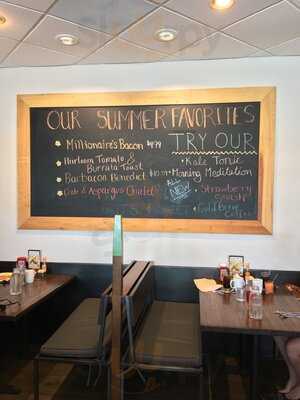 OUR SUMMER FAVORITES
Millionaire's Bacon
Heirloom Tomato &
Burrata Toast
Barbacoa Benedict
Crab & Asparagus Omelet
TRY OUR
Kale Tonic
Morning Meditation
ALL
NEW
Strawberry
Gold Brew
Coffee